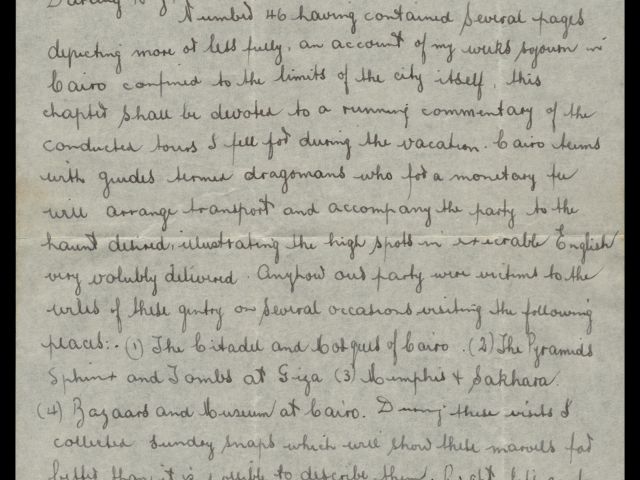 Numbed 46 having contained several pages
depicting more or less fully, an account of my weeks sojourn in
Cairo confined to the limits of the city itself, this
chapter shall be devoted to a running commentary of the
conducted tours I fell for during the vacation. Cairo teems
with guides termed dragomans who for a monetary fee
will arrange transport and accompany the party to the
haunt desired, illustrating the high spots in execrable English
very volubly delivered. Anyhow our party were victims to the
wiles of these gentry on several occasions visiting the following
places:- (1) The Citadel and Mosques of Cairo. (2) The Pyramids
Sphinx and Tombs at Giza (3) Memphis & Sakhara.
(4) Bazaars and Museum at Cairo. During these visits I
collected sundry snaps which will show these marvels far
better than it is possible to describe them.